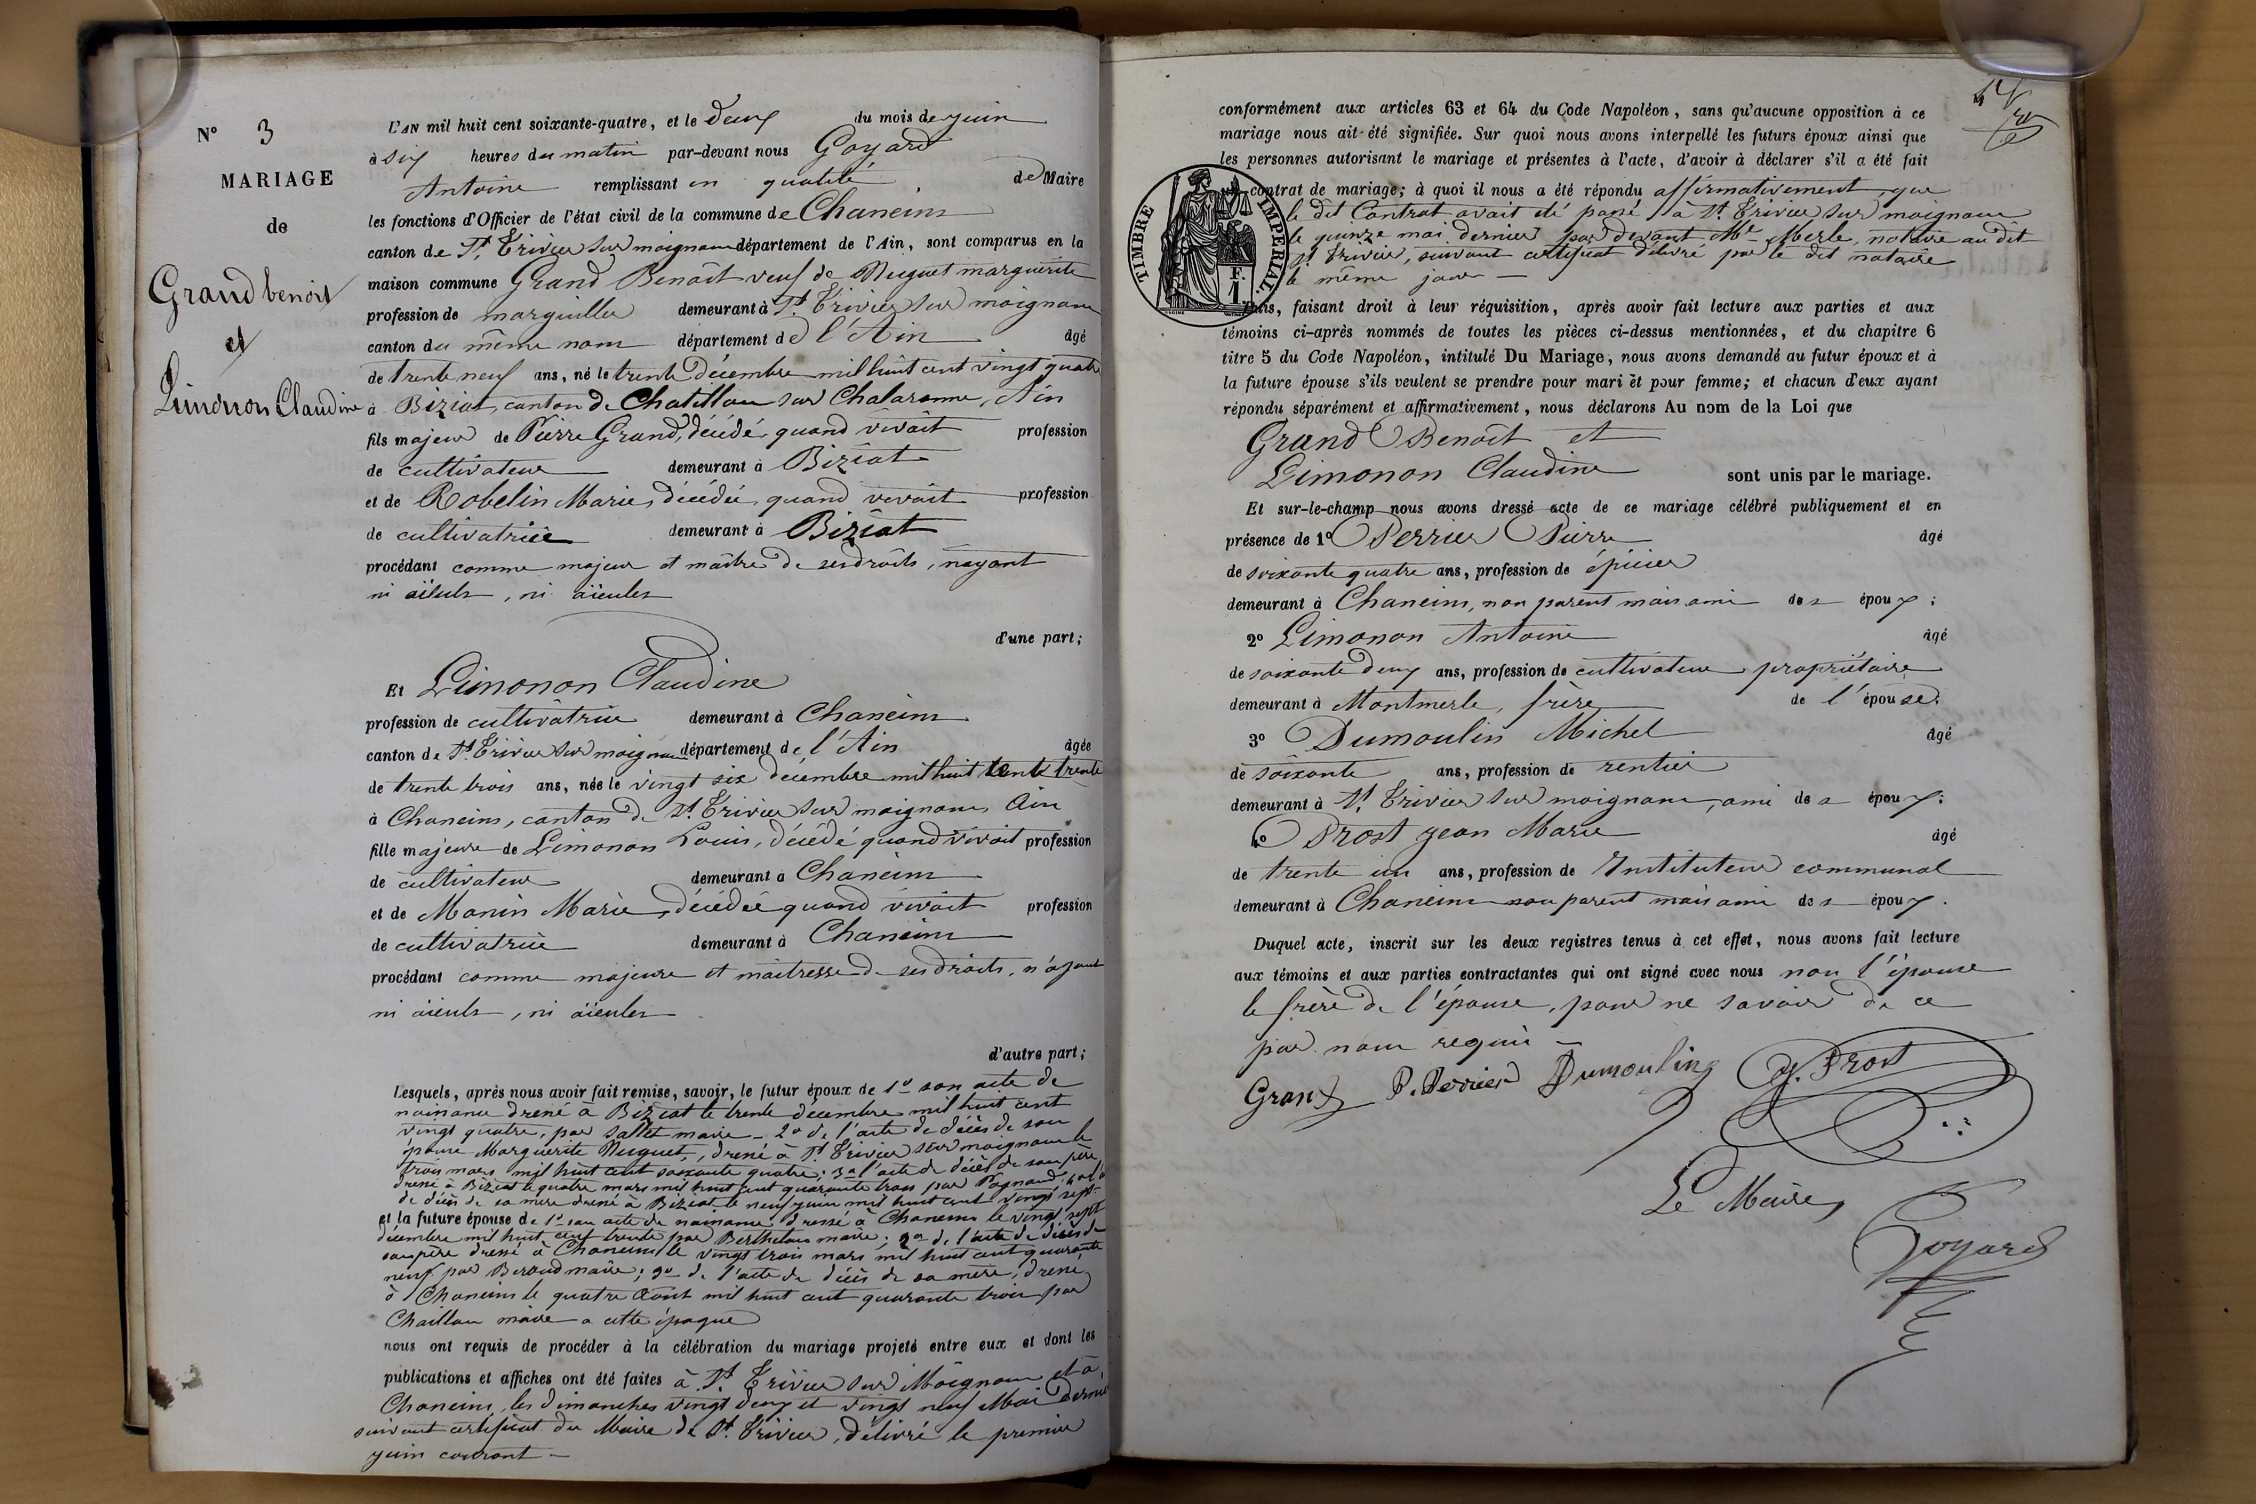 N° 3
MARIAGE
de
Grand benoit
et
Limonon Claudine
L'AN mil huit cent soixante-quatre, et le deux du mois de juin
à six heures du matin par-devant nous Goyard
Antoine remplissant en qualité de Maire
les fonctions d'Officier de l'état civil de la commune de Chaneins
canton de St Trivier sur moignans département de l'Ain, sont comparus en la
maison commune Grand Benoît veuf de Nuguet marguerite
profession de marguiller demeurant à St Trivier sur moignans
canton du même nom département de l'Ain âgé
de trente neuf ans, né le trente décembre mil huit cent vingt quatre
à Biziat, canton de Chatillon sur Chalaronne, Ain
fils majeur de Pierre Grand, décédé, quand vivait profession
de cultivateur demeurant à Biziat
et de Robelin Marie, décédée, quand vivait profession
de cultivatrice demeurant à Biziat
procédant comme majeur et maître de ses droits, nayant
ni aïeuls, ni aïeules
d'une part;
Et Limonon Claudine
profession de cultivatrice demeurant à Chaneins
canton de St Trivier sur moignans département de l'Ain âgée
de trente trois ans, née le vingt six décembre mil huit cent trente
à Chaneins, canton de St Trivier sur moignans Ain
fille majeure de Limonon Louis, décédé quand vivait profession
de cultivateur demeurant à Chaneins
et de Manin Marie, décédée quand vivait profession
de cultivatrice demeurant à Chaneins
procédant comme majeure et maîtresse de ses droits, n'ayant
ni aïeuls, ni aïeules
d'autre part;
Lesquels, après nous avoir fait remise, savoir, le futur époux de 1° son acte de
naissance dressé à Biziat le trente décembre mil huit cent
vingt quatre, par Sallet maire - 2° de l'acte de décès de son
épouse Marguerite Nuguet, dressé à St Trivier sur moignans le
trois mars mil huit cent soixante quatre; 3° l'acte de décès de son père
dressé à Biziat le quatre mars mil huit cent quarante trois par Pognand;
de décès de sa mère dressé à Biziat le neuf juin mil huit cent vingt sept
et la future épouse de 1° son acte de naissance dressé à Chaneins le vingt sept
décembre mil huit cent trente par Berthelon maire; 2° de l'acte de décès de
son père dressé à Chaneins le vingt trois mars mil huit cent quarante
neuf par Beroud maire; 3° de l'acte de décès de sa mère, dressé
à Chaneins le quatre Août mil huit cent quarante trois par
Chaillou maire a cette époque
nous ont requis de procéder à la célébration du mariage projeté entre eux et dont les
publications et affiches ont été faites à St Trivier sur Moignans et à
Chaneins, les dimanches vingt deux et vingt neuf Mai dernier
suivant certificat du Maire de St Trivier, délivré le premier
juin courant -
conformément aux articles 63 et 64 du Code Napoléon, sans qu'aucune opposition à ce
mariage nous ait été signifiée. Sur quoi nous avons interpellé les futurs époux ainsi que
les personnes autorisant le mariage et présentes à l'acte, d'avoir à déclarer s'il a été fait
contrat de mariage; à quoi il nous a été répondu affirmativement, que
le dit Contrat avait été passé à St Trivier sur moignans
le quinze mai dernier par devant Me Merle, notaire au dit
St Trivier, suivant certificat délivré par le dit notaire
le même jour -
TIMBRE IMPERIAL.
F.
1.
Puis, faisant droit à leur réquisition, après avoir fait lecture aux parties et aux
témoins ci-après nommés de toutes les pièces ci-dessus mentionnées, et du chapitre 6
titre 5 du Code Napoléon, intitulé Du Mariage, nous avons demandé au futur époux et à
la future épouse s'ils veulent se prendre pour mari et pour femme; et chacun d'eux ayant
répondu séparément et affirmativement, nous déclarons Au nom de la Loi que
Grand Benoît et
Limonon Claudine sont unis par le mariage.
Et sur-le-champ nous avons dressé acte de ce mariage célébré publiquement et en
présence de 1° Perrier Pierre âgé
de soixante quatre ans, profession de épicier
demeurant à Chaneins, non parent mais ami des époux;
2° Limonon Antoine âgé
de soixante deux ans, profession de cultivateur propriétaire
demeurant à Montmerle, frère de l'épouse;
3° Dumoulin Michel âgé
de soixante ans, profession de rentier
demeurant à St Trivier sur moignans, ami des époux;
4° Prost Jean Marie âgé
de trente un ans, profession de Instituteur communal
demeurant à Chaneins non parent mais ami des époux.
Duquel acte, inscrit sur les deux registres tenus à cet effet, nous avons fait lecture
aux témoins et aux parties contractantes qui ont signé avec nous non l'épouse
le frère de l'épouse, pour ne savoir de ce
par nous requis -
Grand P. Perrier Dumoulin J. Prost
Le Maire,
Goyard